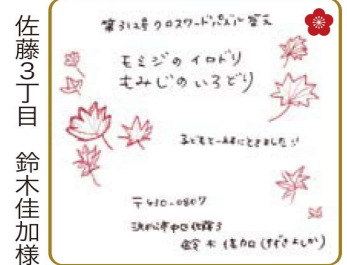 佐藤3丁目 鈴木佳加様
第312号クロスワードパズル答え
モミジのイロドリ
もみじのいろどり
子どもと一緒にときました!!
〒430-0807
浜松市中区佐藤3
鈴木佳加(すずきよしか)